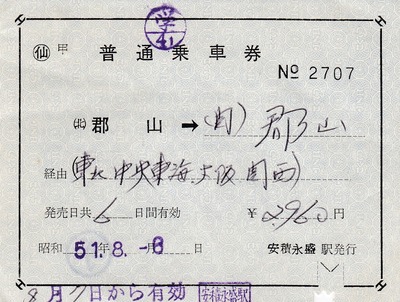 学
41
仙 甲 普通乗車券
№ 2707
(北)郡山→(関)郡山
経由(東北 中央東海、大阪 関西)
発売日共6日間有効 ¥2,960円
昭和51年8.月-6日 安積永盛駅発行
8月7日から有効 安積永盛駅